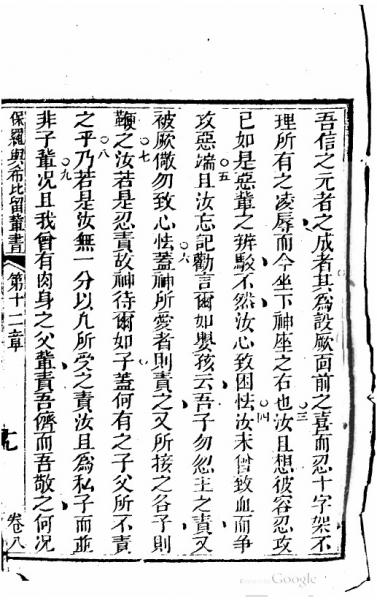 吾信之元者之成者其爲設厥面前之喜而忍十字架不
理所有之凌辱而今坐下神座之右也○三汝且想彼容忍攻
己如是惡輩之辨駁不然汝心致困怯○四汝未曾致血而爭
攻惡端○五且汝忘記勸言爾如與孩云吾子勿忽主之責又
被厥儆勿致心怯○六蓋神所愛者則責之又所接之各子則
鞭之○七汝若是忍責故神待爾如子蓋何有之子父所不責
之乎○八乃若是汝無一分以凡所受之責汝且爲私子而並
非子輩○九况且我曾有肉身之父輩責吾儕而吾敬之何况
保羅與希比留輩書 第十二章 十九 卷八
Google